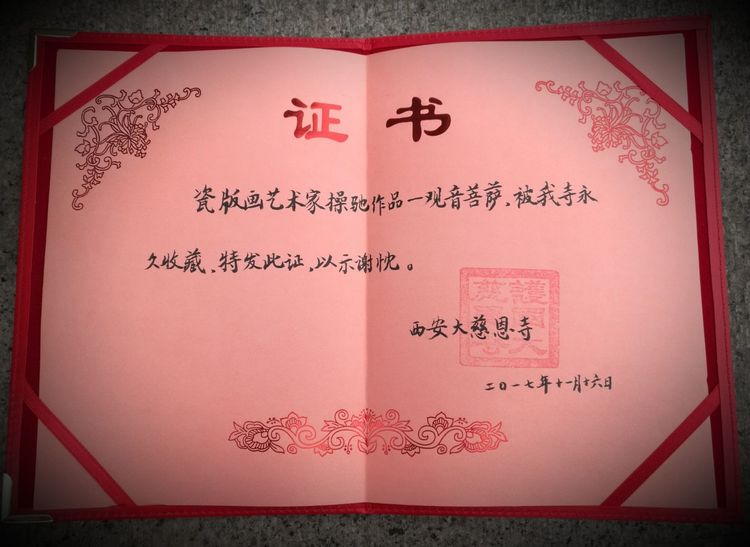 证书
瓷版画艺术家操驰作品一观音菩萨、被我寺永
久收藏、特发此证、以示谢忱。
西安大慈恩寺
二〇一七年十一月十六日
護國大
慈恩寺